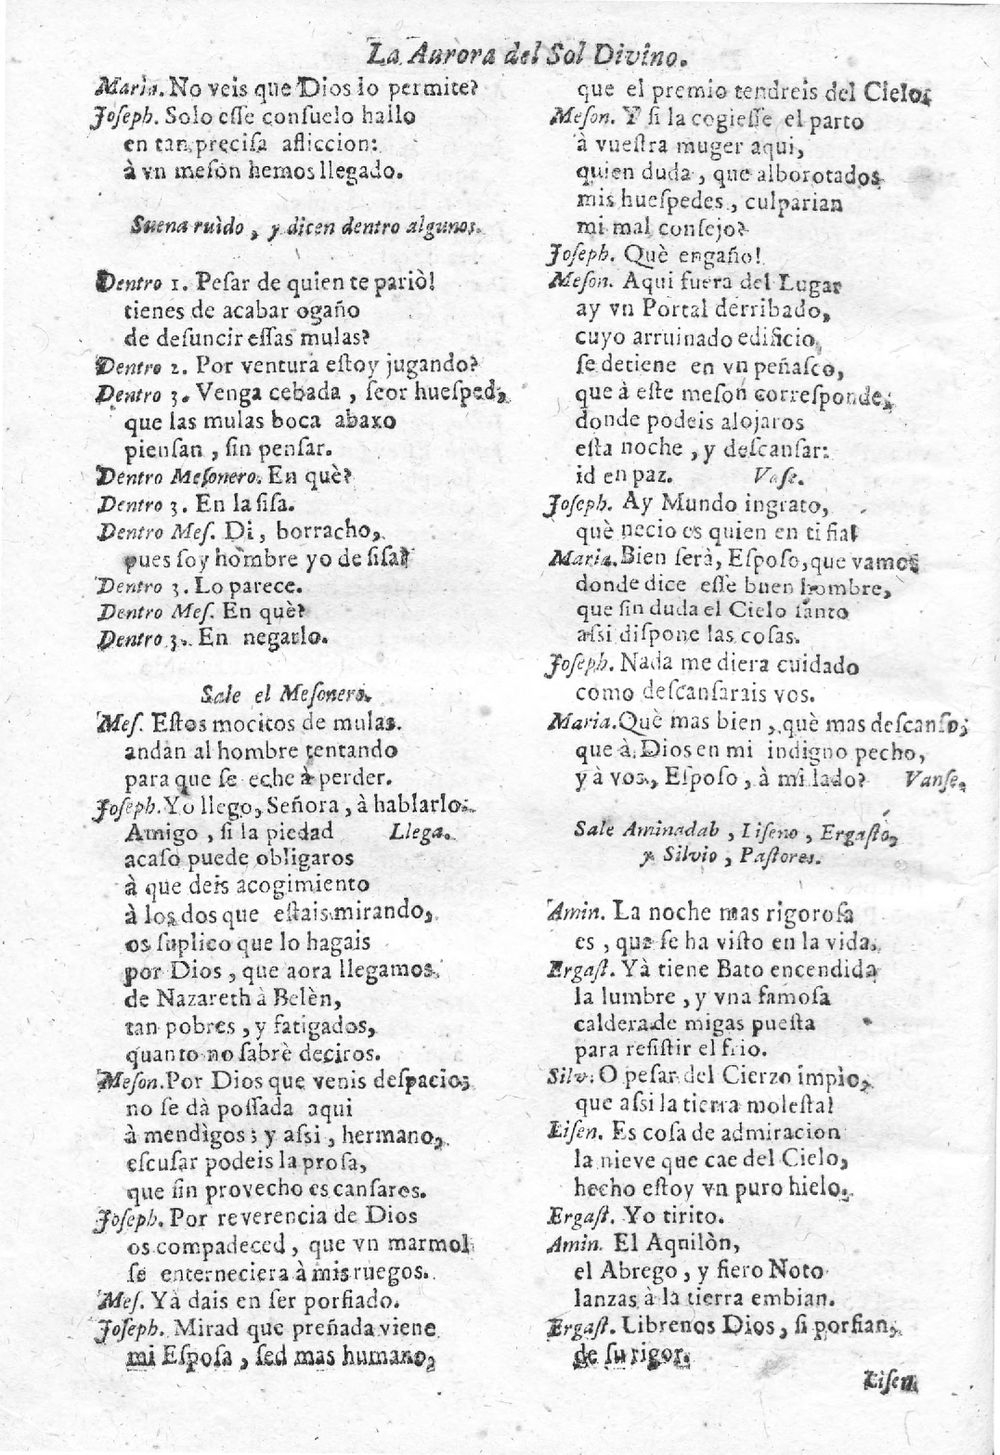 La Aurora del Sol Divino.
Maria. No veis que Dios lo permite?
Joseph. Solo esse consuelo hallo
en tan precisa afliccion:
à vn mesòn hemos llegado.
Suena ruìdo, y dicen dentro algunos.
Dentro 1. Pesar de quien te pariò!
tienes de acabar ogaño
de desuncir essas mulas?
Dentro 2. Por ventura estoy jugando?
Dentro 3. Venga cebada, seor huesped,
que las mulas boca abaxo
piensan, sin pensar.
Dentro Mesonero. En què?
Dentro 3. En la sisa.
Dentro Mes. Di, borracho,
pues soy hombre yo de sisa?
Dentro 3. Lo parece.
Dentro Mes. En què?
Dentro 3. En negarlo.
Sale el Mesonero.
Mes. Estos mocitos de mulas
andan al hombre tentando
para que se eche à perder.
Joseph. Yo llego, Señora, à hablarlo.
Amigo, si la piedad Llega.
acaso puede obligaros
à que deis acogimiento
à los dos que estais mirando,
os suplico que lo hagais
por Dios, que aora llegamos
de Nazareth à Belèn,
tan pobres, y fatigados,
quanto no sabrè deciros.
Meson. Por Dios que venis despacio;
no se dà possada aqui
à mendigos; y assi, hermano,
escusar podeis la prosa,
que sin provecho es cansaros.
Joseph. Por reverencia de Dios
os compadeced, que vn marmol
se enterneciera à mis ruegos.
Mes. Yà dais en ser porfiado.
Joseph. Mirad que preñada viene
mi Esposa, sed mas humano,
que el premio tendreis del Cielo.
Meson. Y si la cogiesse el parto
à vuestra muger aqui,
quien duda, que alborotados
mis huespedes, culparian
mi mal consejo?
Joseph. Què engaño!
Meson. Aqui fuera del Lugar
ay vn Portal derribado,
cuyo arruinado edificio,
se detiene en vn peñasco,
que à este mesòn corresponde;
donde podeis alojaros
esta noche, y descansar:
id en paz. Vase.
Joseph. Ay Mundo ingrato,
què necio es quien en ti fia!
Maria. Bien serà, Esposo, que vamos
donde dice esse buen hombre,
que sin duda el Cielo santo
assi dispone las cosas.
Joseph. Nada me diera cuidado
como descansarais vos.
Maria. Què mas bien, què mas descanso,
que à Dios en mi indigno pecho,
y à vos, Esposo, à mi lado? Vanse.
Sale Aminadab, Liseno, Ergasto,
y Silvio, Pastores.
Amin. La noche mas rigorosa
es, que se ha visto en la vida.
Ergast. Yà tiene Bato encendida
la lumbre, y vna famosa
caldera de migas puesta
para resistir el frio.
Silv. O pesar del Cierzo impìo,
que assi la tierra molesta!
Lisen. Es cosa de admiracion
la nieve que cae del Cielo,
hecho estoy vn puro hielo.
Ergast. Yo tirito.
Amin. El Aquilòn,
el Abrego, y fiero Noto
lanzas à la tierra embian.
Ergast. Librenos Dios, si porfian,
de su rigor.
Lisen.